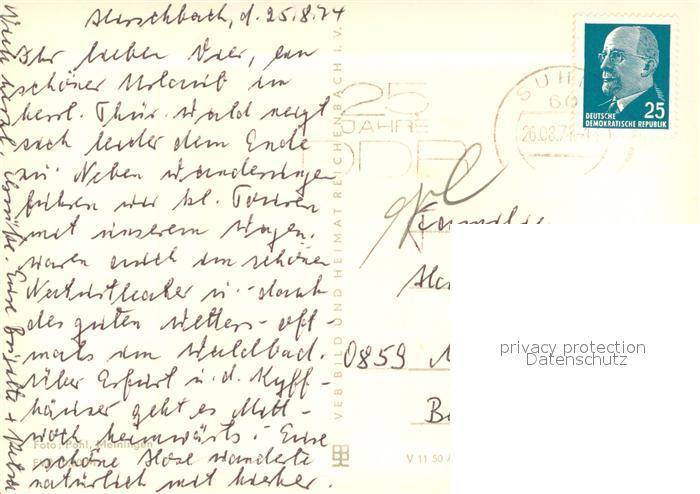 Hirschbach, d. 25.8.74
Ihr lieben Vier, ein
schöner Urlaub im
herrl. Thür. Wald neigt
sich leider dem Ende
zu. Neben Wanderungen
führen wir kl. Touren
mit unserem Wagen,
waren auch im schönen
Naturtheater u. dank
des guten Wetters oft-
mals im Waldbad.
Über Erfurt u. d. Kyff-
häuser geht es Mitt-
woch heimwärts. Eure
schöne Hose wanderte
natürlich mit hierher.
Euch herzl. Grüße. Eure Brigitte +
25
JAHRE
DDR
SUHL
60
26.08.74
DEUTSCHE
DEMOKRATISCHE REPUBLIK
25
Familie
0859
VEB BILD UND HEIMAT REICHENBACH I. V.
Foto: Pohl, Meiningen
V 11 50
privacy protection
Datenschutz